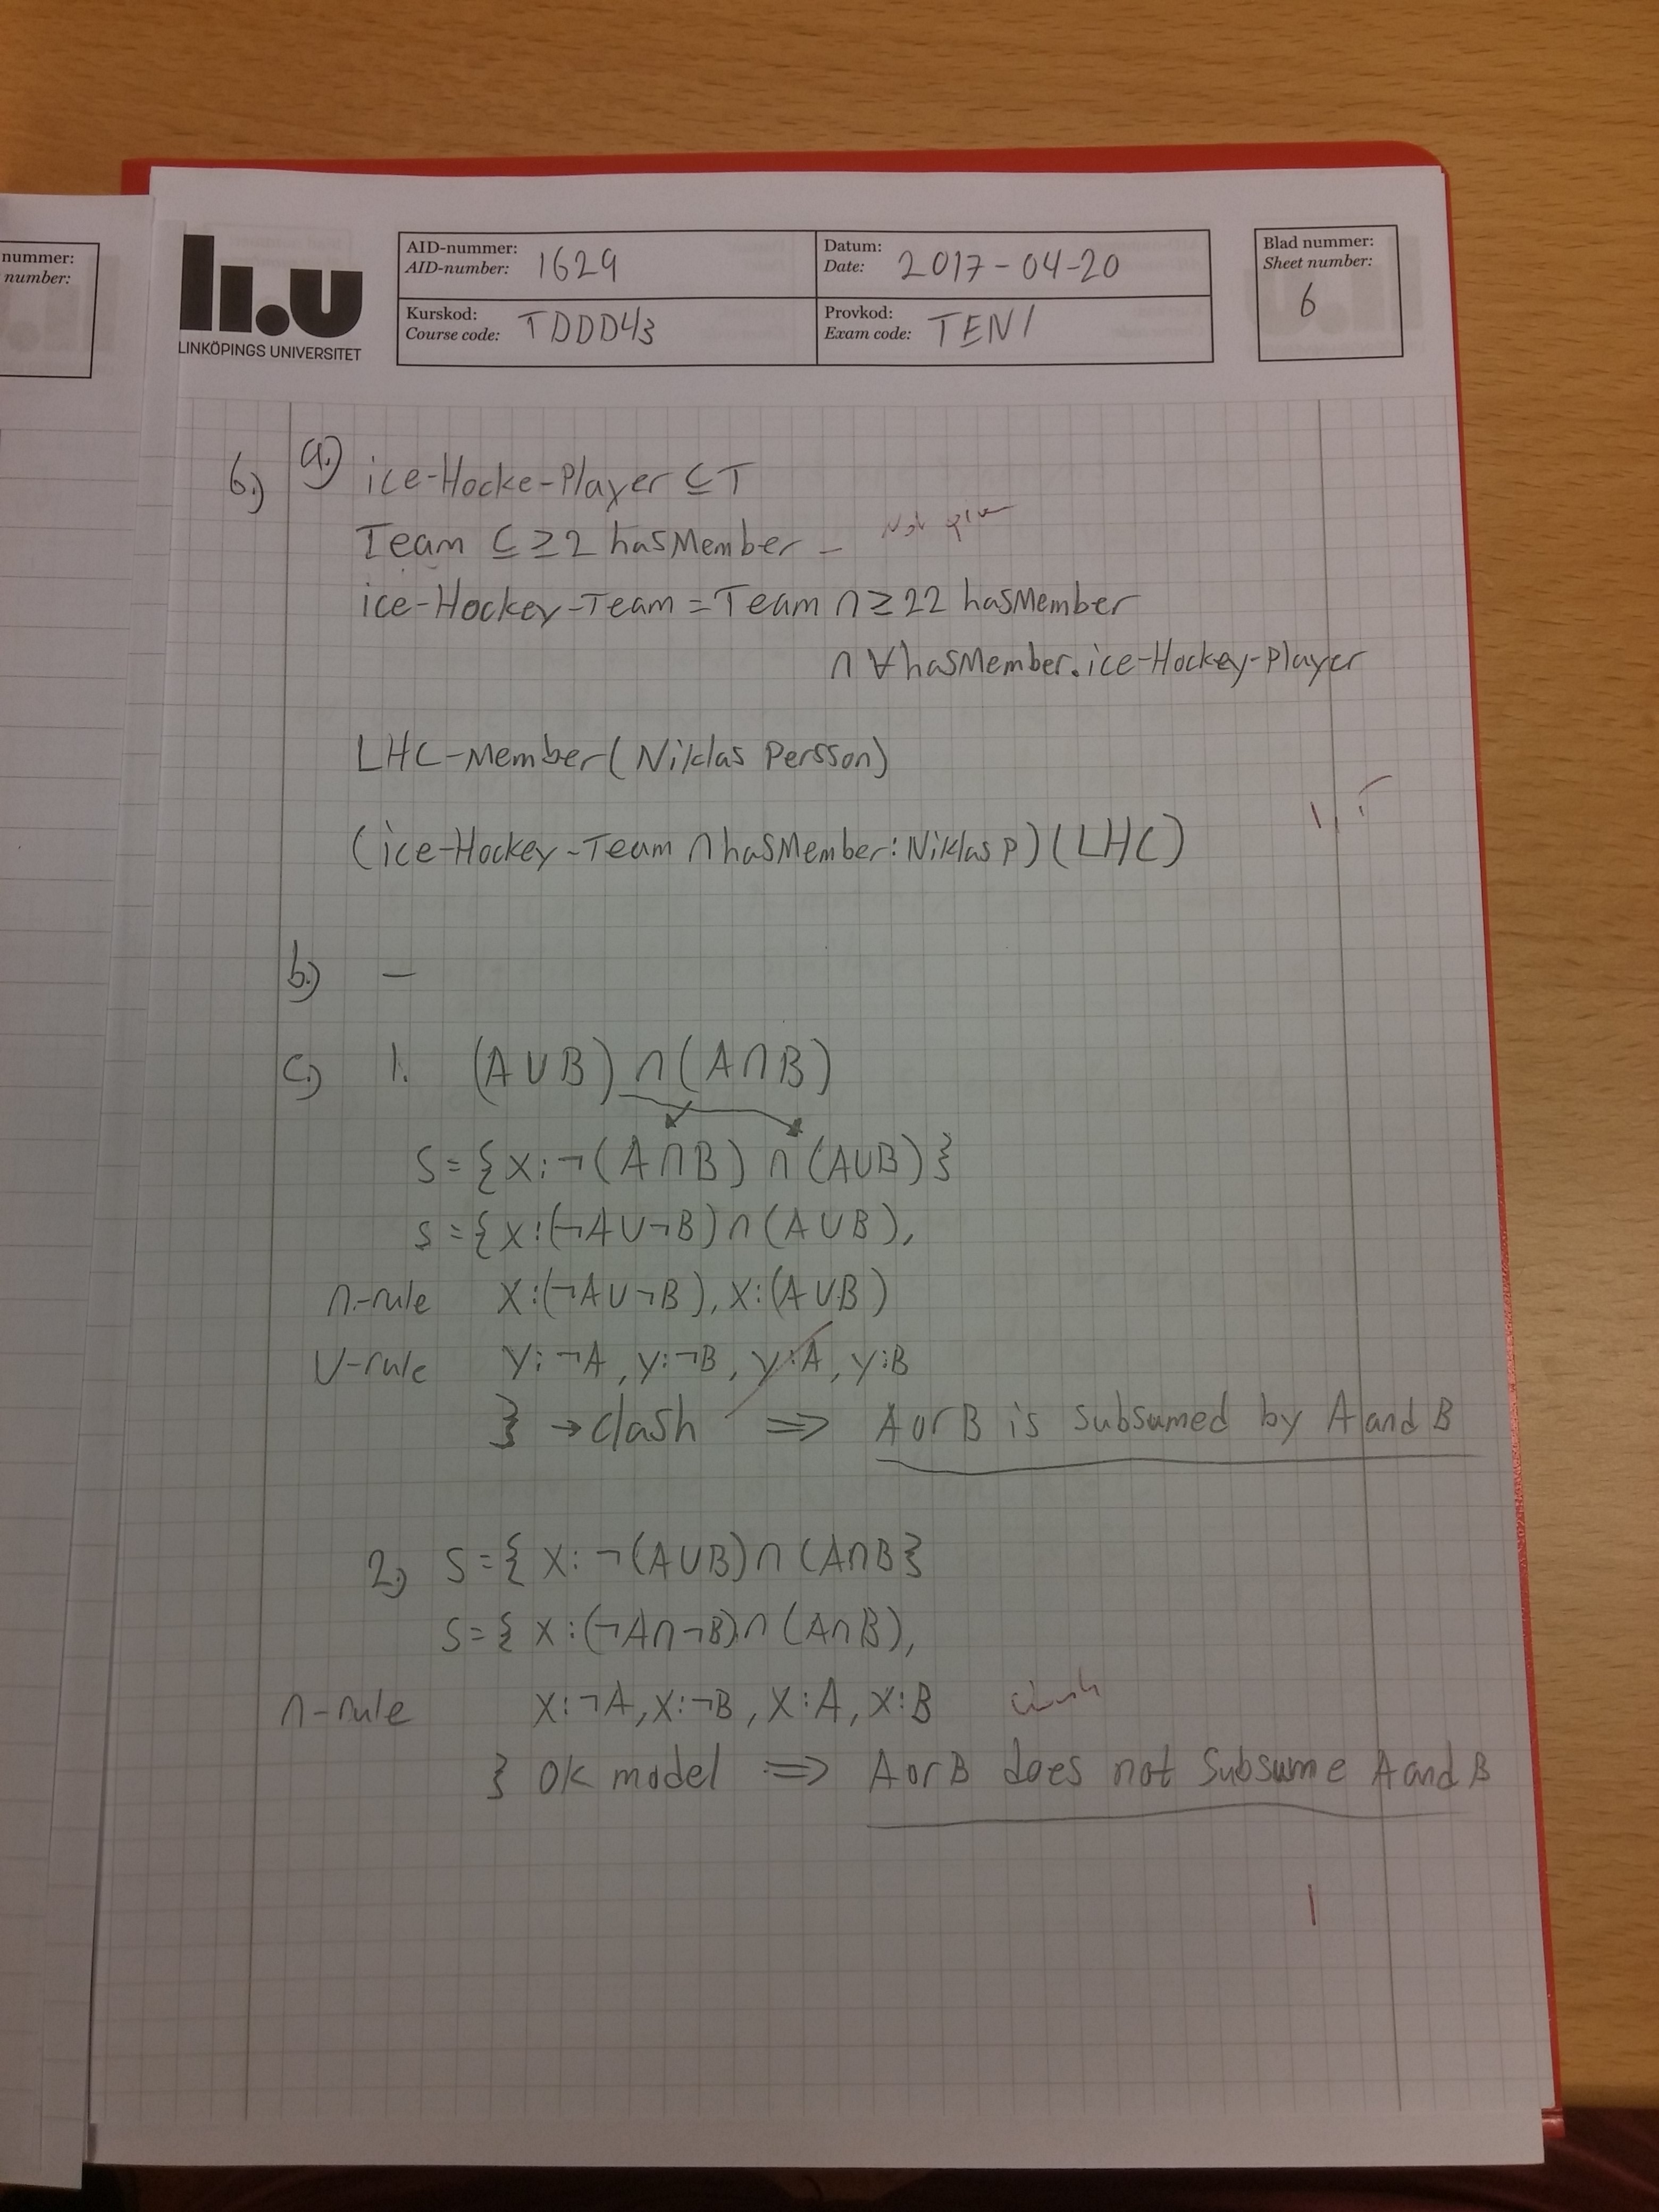 nummer:
number:
li.u
LINKÖPINGS UNIVERSITET
AID-nummer:
AID-number: 1629
Datum:
Date: 2017-04-20
Kurskod:
Course code: TDDD43
Provkod:
Exam code: TEN1
Blad nummer:
Sheet number:
6
6.) a.) ice-Hocke-Player ⊆ T
Team ⊆ ≥2 hasMember – Not
ice-Hockey-Team = Team ∩ ≥ 22 hasMember
∩ ∀hasMember.ice-Hockey-Player
LHC-Member(Niklas Persson)
1,5
(ice-Hockey-Team ∩ hasMember:Niklas P)(LHC)
b.) –
c.) 1. (A∪B) ∩ (A∩B)
S = { x: ¬(A∩B) ∩ (A∪B) }
S = { x:(¬A∪¬B) ∩ (A∪B),
∩-rule x:(¬A∪¬B), x:(A∪B)
∪-rule y:¬A, y:¬B, y:A, y:B
} → clash ⇒ A or B is subsumed by A and B
2.) S = { x: ¬(A∪B) ∩ (A∩B }
S = { x:(¬A∩¬B) ∩ (A∩B),
∩-rule x:¬A, x:¬B, x:A, x:B clash
} OK model ⇒ A or B does not subsume A and B
1